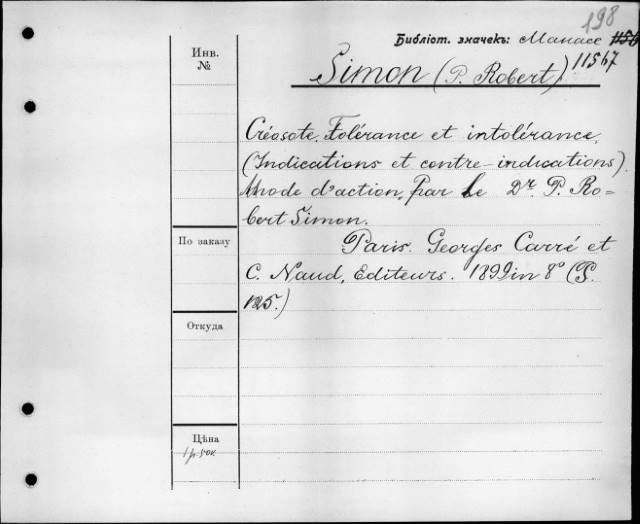 198
Библіот. значекъ: Манасе 1156
11567
Инв.
№
Simon (P. Robert)
Créosote. Tolérance et intolérance.
(Indications et contre-indications).
Mode d'action, par le Dr. P. Ro-
bert Simon.
По заказу
Paris. Georges Carré et
C. Naud, Editeurs. 1899 in 8° (P.
125.)
Откуда
Цѣна
1 р. 50 к.